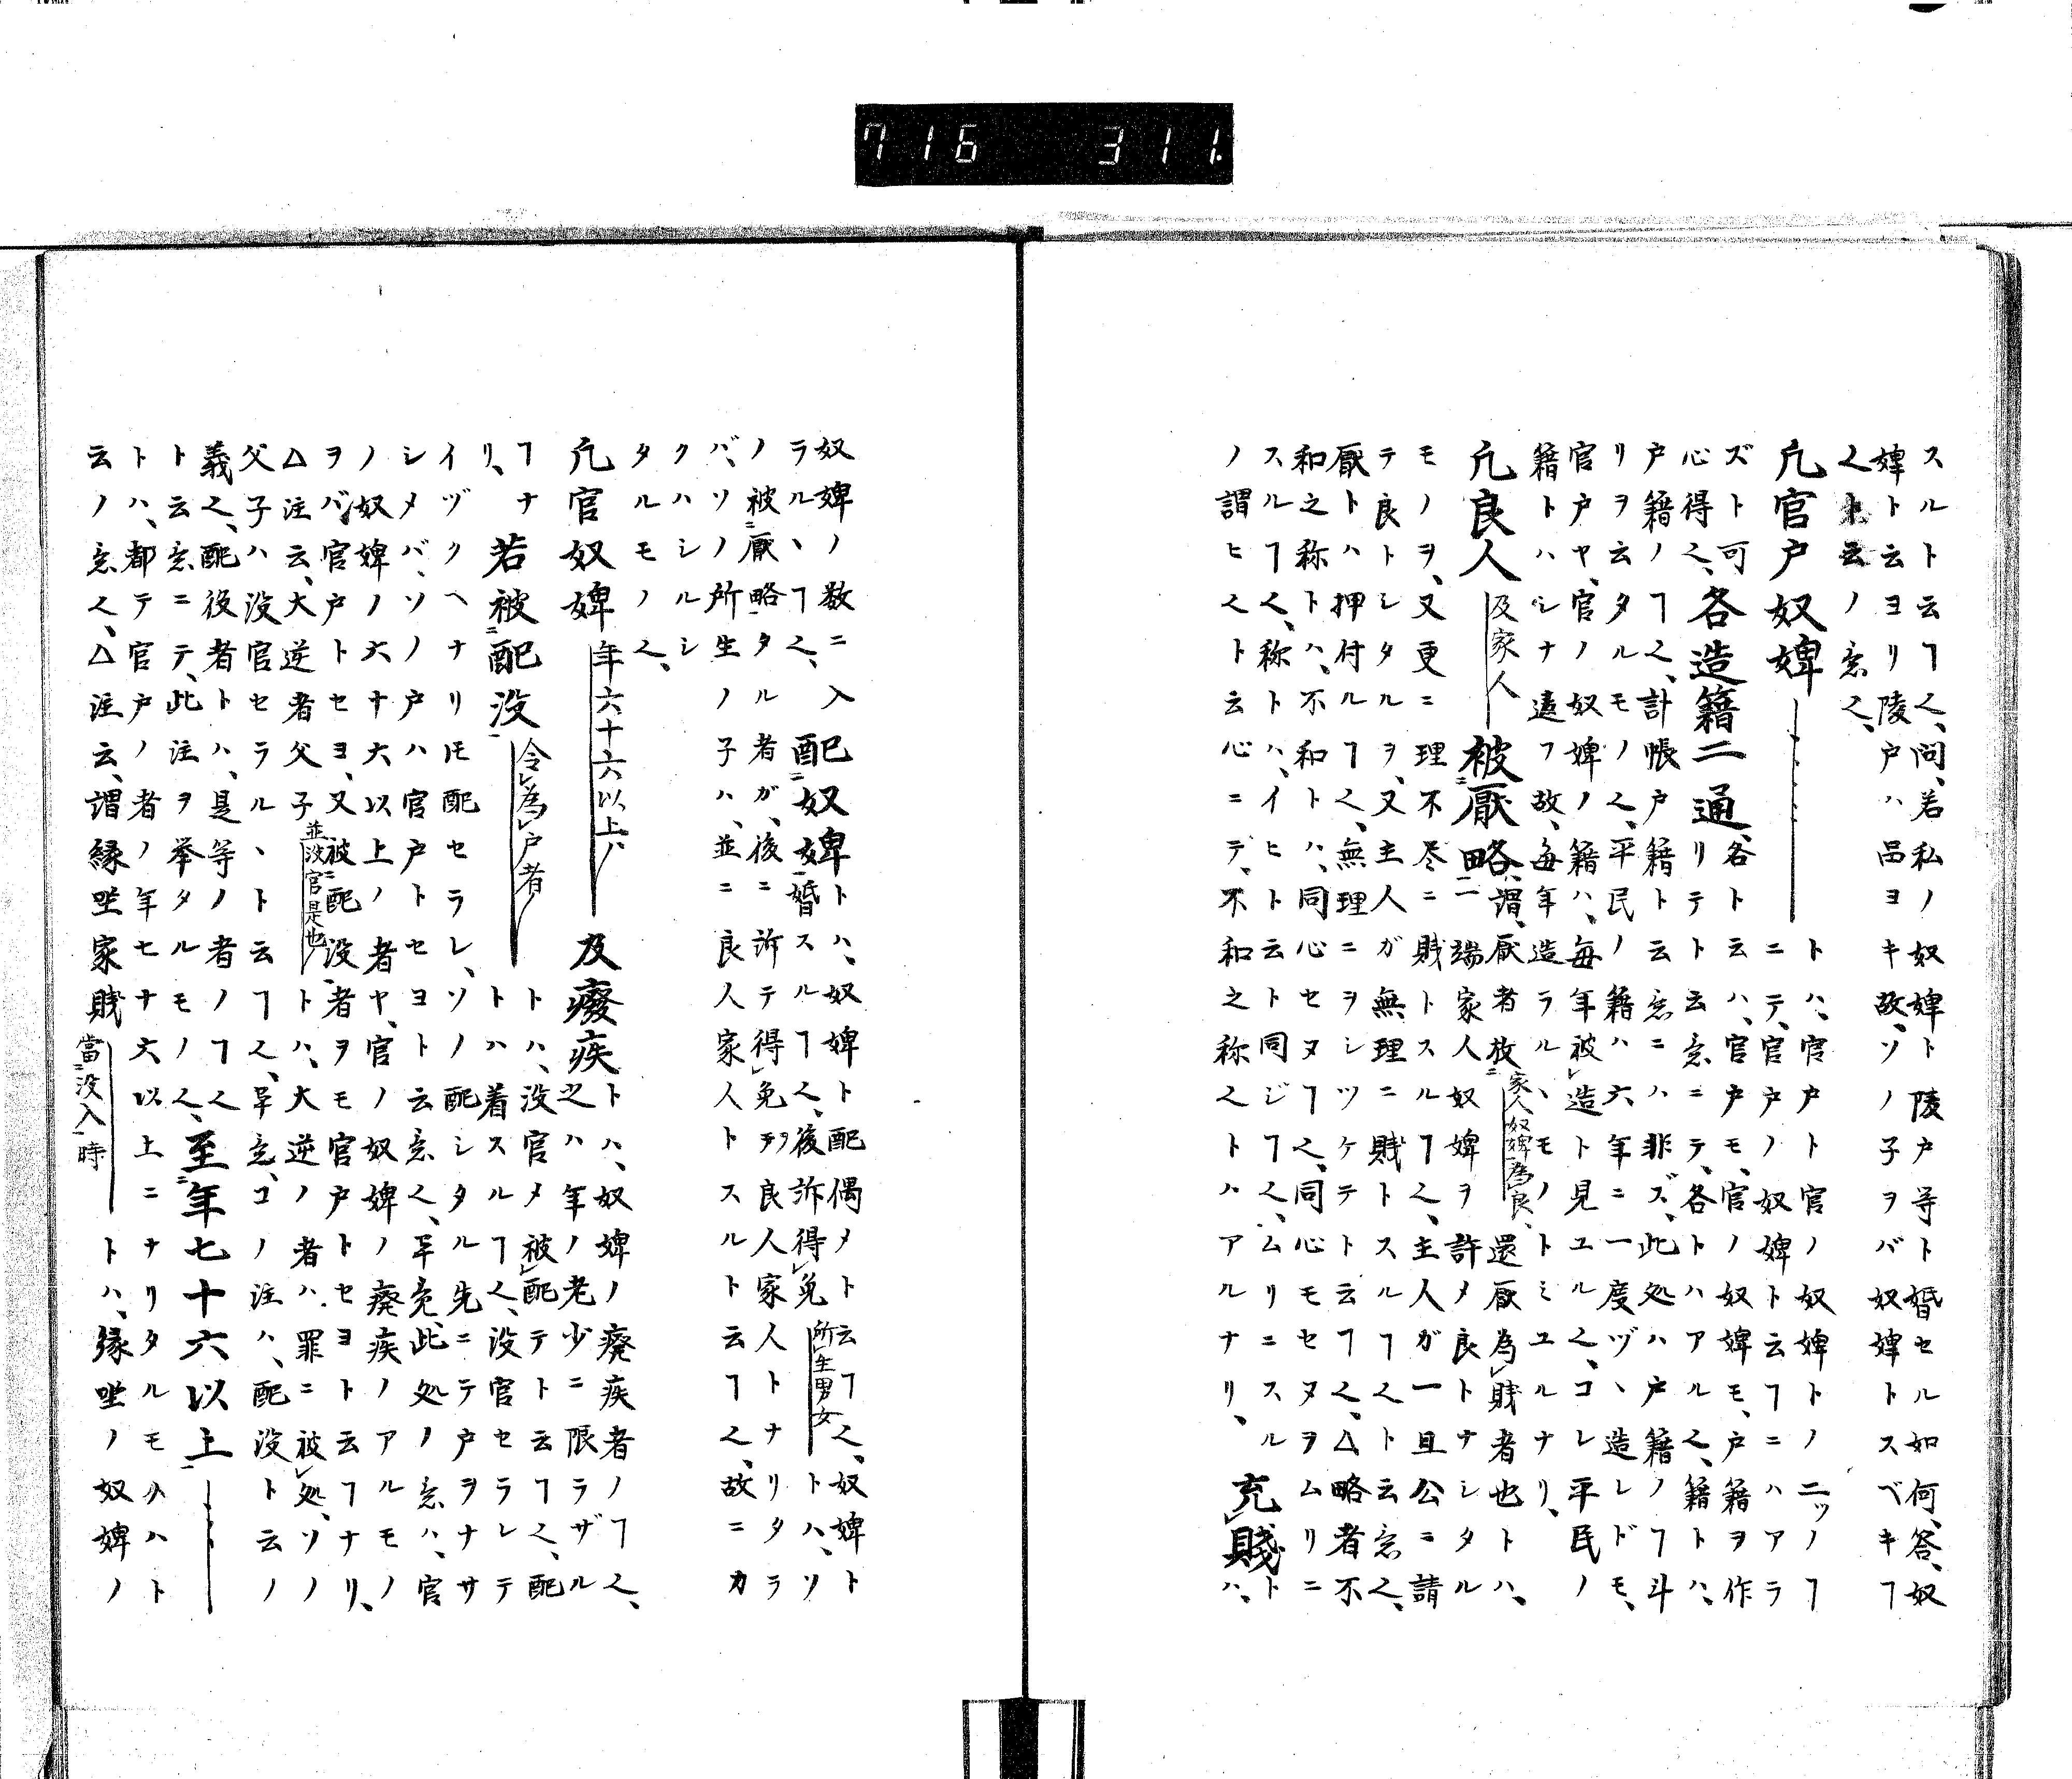 716 311.
スルト云ヿ也、問、若私ノ奴婢ト陵戸等ト婚セル如何、答、奴
婢ト云ヨリ陵戸ハ品ヨキ故、ソノ子ヲバ奴婢トスベキヿ
也ト云ノ意也、
凢官戸奴婢 トハ、官戸ト官ノ奴婢トノ二ツノヿ
ニテ、官戸ノ奴婢ト云ヿニハアラ
ズト可心得也、各造籍二通、各ト云ハ、官戸モ、官ノ奴婢モ、戸籍ヲ作
リテト云意ニテ、各トハアル也、籍トハ、
戸籍ノヿ也、計帳戸籍ト云意ニハ非ズ、此処ハ戸籍ノヿ斗
リヲ云タルモノ也、平民ノ籍ハ六年ニ一度ヅヽ造レドモ、
官戸ヤ、官ノ奴婢ノ籍ハ、毎年被造ト見ユル也、コレ平民ノ
籍トハシナ違フ故、毎年造ラルヽモノトミユルナリ、
凢良人及家人被厭略、謂、厭者放家人奴婢為良、還厭為賎者也トハ、
一端家人奴婢ヲ許メ良トナシタル
モノヲ、又更ニ理不尽ニ賎トスルヿ也、主人ガ一旦公ニ請
テ良トシタルヲ、又主人ガ無理ニ賎トスルヿ也ト云意也、
厭トハ押付ルヿ也、無理ニヲシツケテト云ヿ也、△略者不
和之称トハ、不和トハ、同心セヌヿ也、同心モセヌヲムリニ
スルヿ也、称トハ、イヒト云ト同ジヿ也、ムリニスルト
ノ謂ヒ也ト云心ニデ、不和之称也トハアルナリ、充賤ハ、
奴婢ノ数ニ入ラルヽヿ也、配奴婢トハ、奴婢ト配偶メト云ヿ也、奴婢ト
婚スルヿ也、後訴得免所生男女トハ、ソ
ノ被厭略タル者ガ、後ニ訴テ得免ヲ良人家人トナリタラ
バ、ソノ所生ノ子ハ、並ニ良人家人トスルト云ヿ也、故ニカ
クハシルシ
タルモノ也、
凢官奴婢年六十六以上ハ及癈疾トハ、奴婢ノ癈疾者ノヿ也、
之ハ年ノ老少ニ限ラザル
ヿナリ、若被配没令為戸者トハ、没官メ被配テト云ヿ也、配
トハ着スルヿ也、没官セラレテ
イヅクヘナリトモ配セラレ、ソノ配シタル先ニテ戸ヲナサ
シメバ、ソノ戸ハ官戸トセヨト云意也、早竟此処ノ意ハ、官
ノ奴婢ノ六十六以上ノ者ヤ、官ノ奴婢ノ癈疾ノアルモノ
ヲバ官戸トセヨ、又被配没者ヲモ官戸トセヨト云ヿナリ、
△注云、大逆者父子並没官是也トハ、大逆ノ者ハ、罪ニ被処、ソノ
父子ハ没官セラルヽト云ヿ也、早意、コノ注ハ、配没ト云ノ
義也、配役者トハ、是等ノ者ノヿ也
ト云意ニテ、此注ヲ挙タルモノ也、至年七十六以上
トハ、都テ官戸ノ者ノ年七十六以上ニナリタルモノハト
云ノ意也、△注云、謂縁坐家賎當没入時トハ、縁坐ノ奴婢ノ